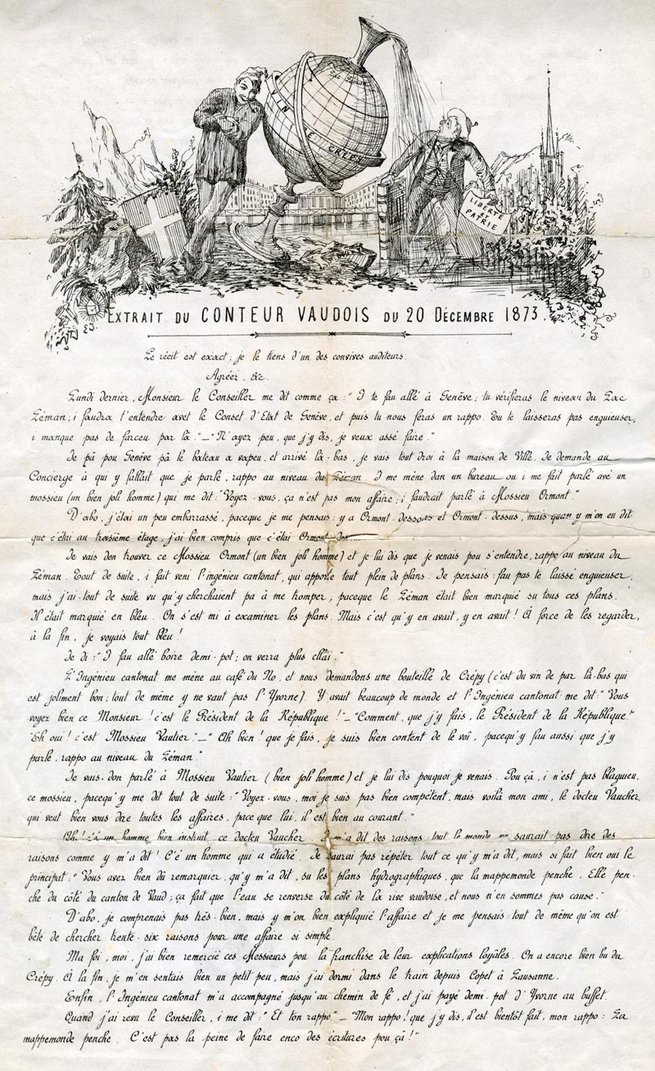 VIN DE CRÉPY
LIBERTÉ & PATRIE
EXTRAIT DU CONTEUR VAUDOIS DU 20 DÉCEMBRE 1873.
Le récit est exact; je le tiens d'un des convives auditeurs.
Agréez, &c.
Lundi dernier, Monsieur le Conseiller me dit comme ça: "I te fau allé à Genève; tu vérifieras le niveau du Lac
Léman, i faudra t'entendre avet le Conset d'Etat de Genève, et puis tu nous feras un rappo. Tu te laisseras pas enguieuser,
i manque pas de farceu par là." — "N'ayez peu, que j'y dis, je veux assé faire."
Je pâ pou Genève pâ le bateau a vapeu, et arrivé là-bas, je vais tout droi à la maison de Ville. Je demande au
Concierge à qui y fallait que je parle, rappo au niveau du Léman. I me mène dan un bureau ou i me fait parlé avé un
mossieu (un bien joli homme) qui me dit: "Voyez-vous, ça n'est pas mon affaire, i faudrait parlé à Mossieu Ormont."
D'abo, j'étai un peu embarrassé, paceque je me pensais: y a Ormont-dessous et Ormont-dessus, mais quan y m'on eu dit
que c'étai au troisième étage, j'ai bien compris que c'étai Ormont-
Je vais don trouver ce Mossieu Ormont (un bien joli homme) et je lui dis que je venais pou s'entendre, rappo au niveau du
Léman. Tout de suite, i fait veni l'ingénieu cantonat, qui apporte tout plein de plans. Je pensais: fau pas te laissé enguieuser,
mais j'ai tout de suite vu qu'y cherchaient pa à me tromper, paceque le Léman était bien marquié su tous ces plans.
Il était marquié en bleu. On s'est mi à examiner les plans. Mais c'est qu'y en avait, y en avait! À force de les regarder,
à la fin, je voyais tout bleu!
Je di: "I fau allé boire demi-pot; on verra plus cllai."
L'Ingénieu cantonat me mène au café du No, et nous demandons une bouteille de Crépy (c'est du vin de par là-bas qui
est joliment bon; tout de même y ne vaut pas l'Yvorne). Y avait beaucoup de monde et l'Ingénieu cantonat me dit: "Vous
voyez bien ce Monsieur! c'est le Président de la République!" — "Comment, que j'y fais, le Président de la République?"
"Eh oui! c'est Mossieu Vautier." — "Oh bien! que je fais, je suis bien content de le voi, pacequ'y fau aussi que j'y
parle, rappo au niveau du Léman."
Je vais don parlé à Mossieu Vautier (bien joli homme) et je lui dis pouquoi je venais. Pou ça, i n'est pas blagueu,
ce mossieu, pacequ'y me dit tout de suite: "Voyez-vous, moi je suis pas bien compétent, mais voilà mon ami, le docteu Vaucher,
qui veut bien vous dire toutes les affaires, pace que lui, il est bien au courant."
Oh! c'é un homme bien instruit, ce docteu Vaucher. I m'a dit des raisons tout le monde ne saurait pas dire des
raisons comme y m'a dit! C'é un homme qui a étudié. Je saurai pas répéter tout ce qu'y m'a dit, mais si fait bien oui le
principat: "Vous avez bien dû remarquier, qu'y m'a dit, su les plans hydrographiques, que la mappemonde penche. Elle pen-
che du côté du canton de Vaud; ça fait que l'eau se renverse du côté de la rive vaudoise, et nous n'en sommes pas cause."
D'abo, je comprenais pas très-bien, mais y m'on bien expliquié l'affaire et je me pensais: tout de même qu'on est
bête de chercher trente-six raisons pour une affaire si simple.
Ma foi, moi, j'ai bien remercié ces Messieurs pou la franchise de leur explications loyales. On a encore bien bu du
Crépy. À la fin, je m'en sentais bien un petit peu, mais j'ai dormi dans le train depuis Copet à Lausanne.
Enfin, l'Ingénieu cantonat m'a accompagné jusqu'au chemin de fé, et j'ai payé demi-pot d'Yvorne au buffet.
Quand j'ai revu le Conseiller, i me dit: "Et ton rappo?" — "Mon rappo! que j'y dis, il est bientôt fait, mon rappo: La
mappemonde penche. C'est pas la peine de faire enco des écritures pou ça!"